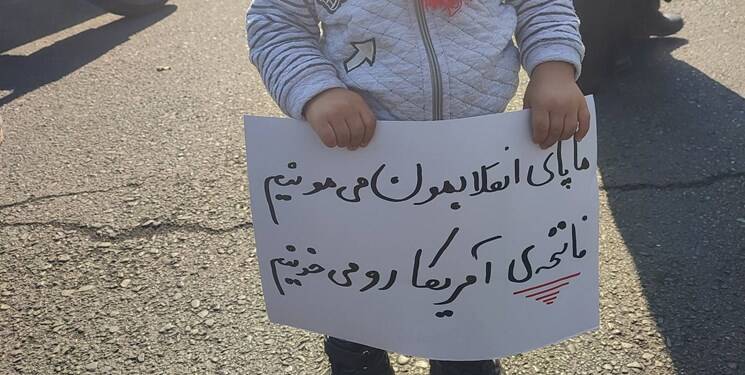 ما پای انقلابمون می مونیم
فاتحه‌ی آمریکا رو می خونیم